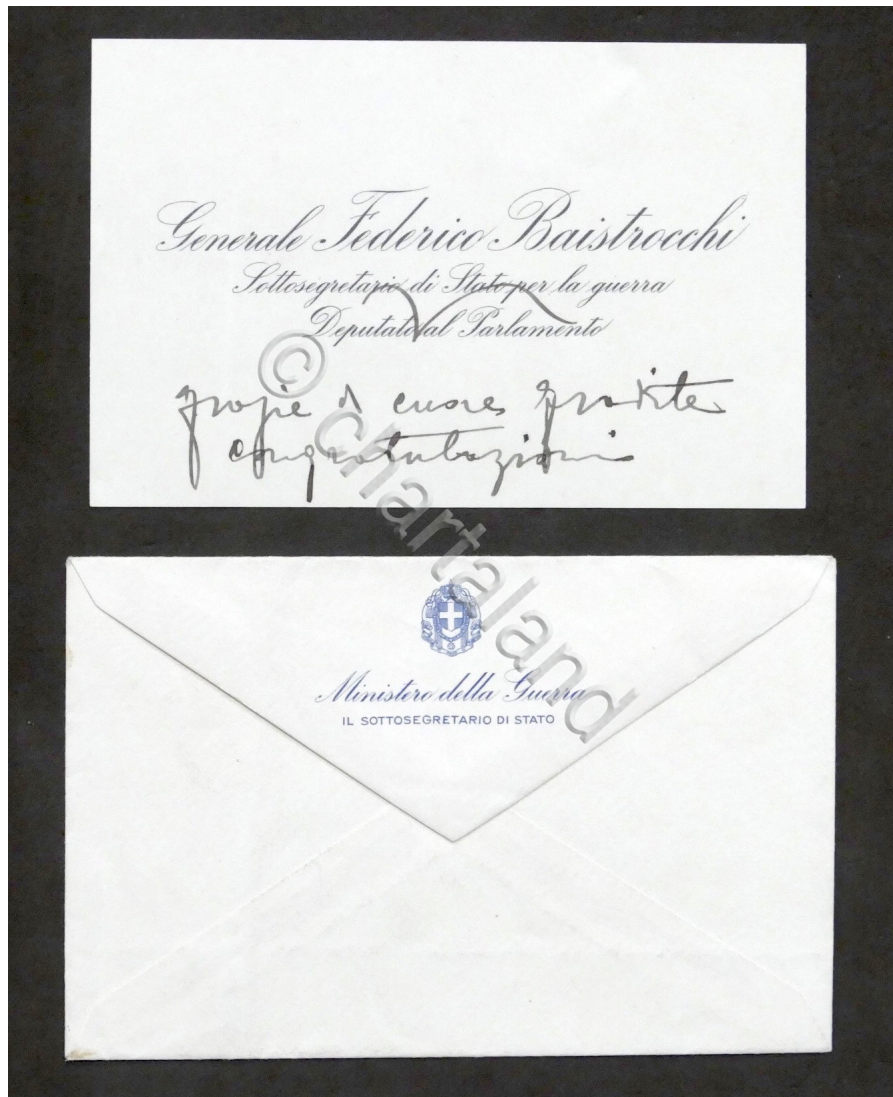 Generale Federico Baistrocchi
Sottosegretario di Stato per la guerra
Deputato al Parlamento
grazie di cuore gradite
congratulazioni
© chartaland
Ministero della Guerra
IL SOTTOSEGRETARIO DI STATO